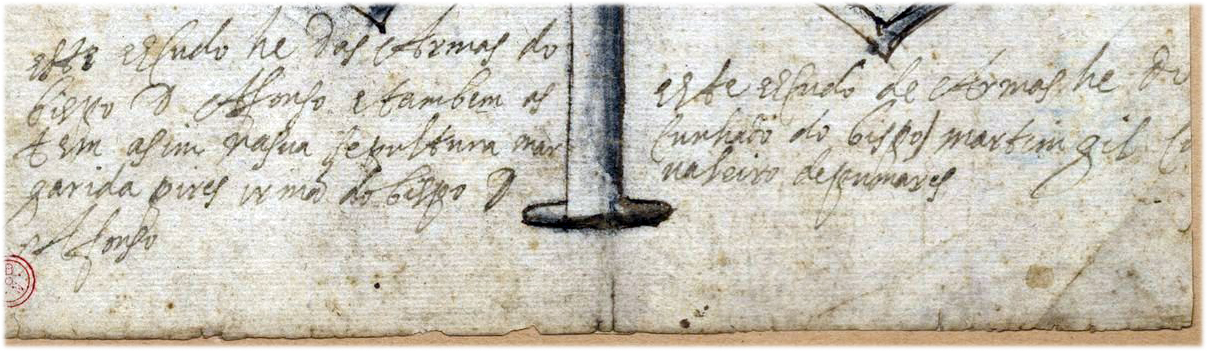 este escudo he das Armas do
bispo D Afonso e tambem as
tem asim na sua sepultura mar
garida pires irmã do bispo D
Afonso
este escudo de Armas he do
Cunhado do bispo martim gil
de pumares